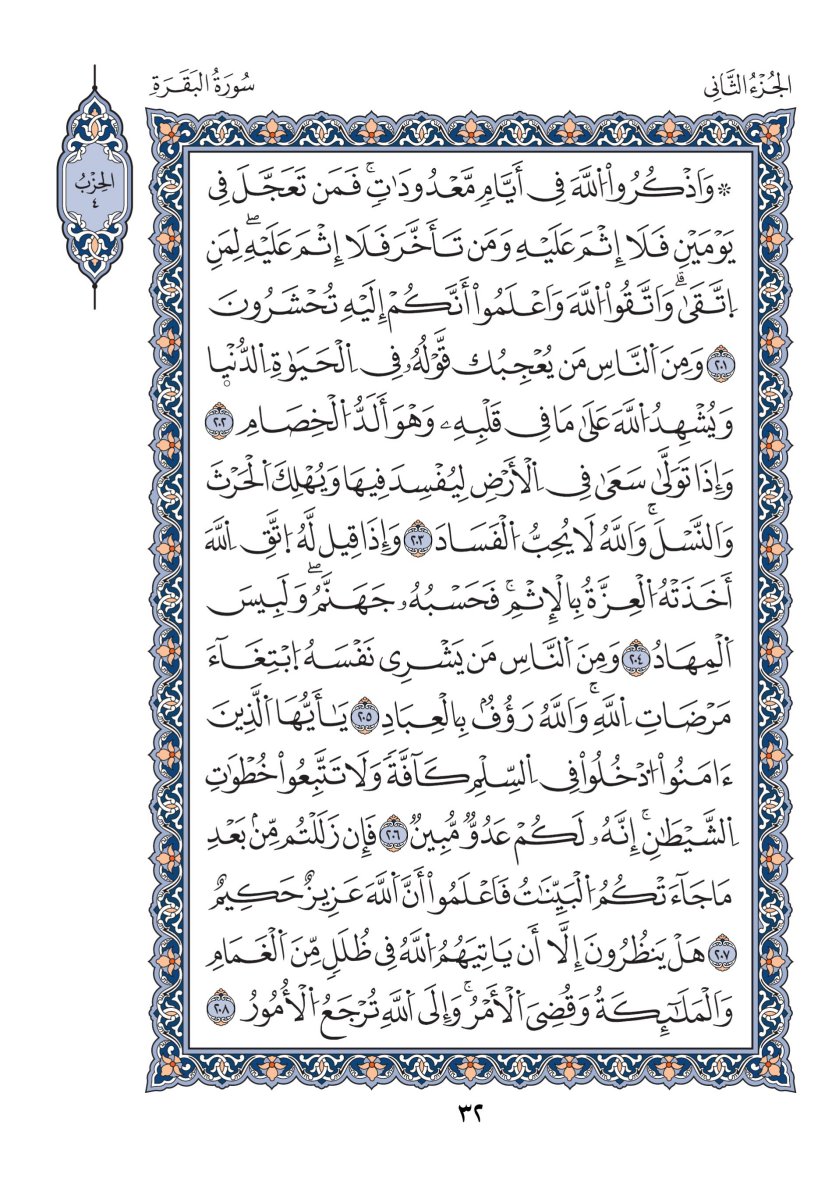 الجُزْءُ الثَّانِى
سُورَةُ البَقَرَةِ
الحِزْبُ
٤
۞ وَاذْكُرُواْ اُللَّهَ فِى أَيَّامٍ مَّعْدُودَٰتٍۚ فَمَن تَعَجَّلَ فِى
يَوْمَيْنِ فَلَا إِثْمَ عَلَيْهِ وَمَن تَأَخَّرَ فَلَا إِثْمَ عَلَيْهِۖ لِمَنِ
اِتَّقَىٰۗ وَاتَّقُواْ اُللَّهَ وَاعْلَمُواْ أَنَّكُمْ إِلَيْهِ تُحْشَرُونَ
٢٠١ وَمِنَ اَلنَّاسِ مَن يُعْجِبُك قَّوْلُهُۥ فِى اِلْحَيَوٰةِ اِلدُّنْيا
وَيُشْهِدُ اُللَّهَ عَلَىٰ مَا فِى قَلْبِهِۦ وَهْوَ أَلَدُّ اُلْخِصَامِ ٢٠٢
وَإِذَا تَوَلَّىٰ سَعَىٰ فِى اِلْأَرْضِ لِيُفْسِدَ فِيهَا وَيُهْلِكَ اَلْحَرْثَ
وَالنَّسْلَۚ وَاللَّهُ لَا يُحِبُّ اُلْفَسَادَ ٢٠٣ وَإِذَا قِيل لَّهُ اِتَّقِ اِللَّهَ
أَخَذَتْهُ اُلْعِزَّةُ بِالْإِثْمِۚ فَحَسْبُهُۥ جَهَنَّمُۖ وَلَبِيسَ
اَلْمِهَادُ ٢٠٤ وَمِنَ اَلنَّاسِ مَن يَشْرِى نَفْسَهُ اُبْتِغَآءَ
مَرْضَاتِ اِللَّهِۚ وَاللَّهُ رَؤُفٌۢ بِالْعِبَادِ ٢٠٥ يَٰأَيُّهَا اَلَّذِينَ
ءَامَنُواْ اُدْخُلُواْ فِى اِلسِّلْمِ كَآفَّةً وَلَا تَتَّبِعُواْ خُطْوَٰتِ
اِلشَّيْطَٰنِۚ إِنَّهُۥ لَكُمْ عَدُوٌّ مُّبِينٌ ٢٠٦ فَإِن زَلَلْتُم مِّنۢ بَعْدِ
مَا جَآءَتْكُمُ اُلْبَيِّنَٰتُ فَاعْلَمُواْ أَنَّ اَللَّهَ عَزِيزٌ حَكِيمٌ
٢٠٧ هَلْ يَنظُرُونَ إِلَّا أَن يَاتِيَهُمُ اُللَّهُ فِى ظُلَلٍ مِّنَ اَلْغَمَامِ
وَالْمَلَٰٓئِكَةُ وَقُضِىَ اَلْأَمْرُۚ وَإِلَى اَللَّهِ تُرْجَعُ اُلْأُمُورُ ٢٠٨
٣٢